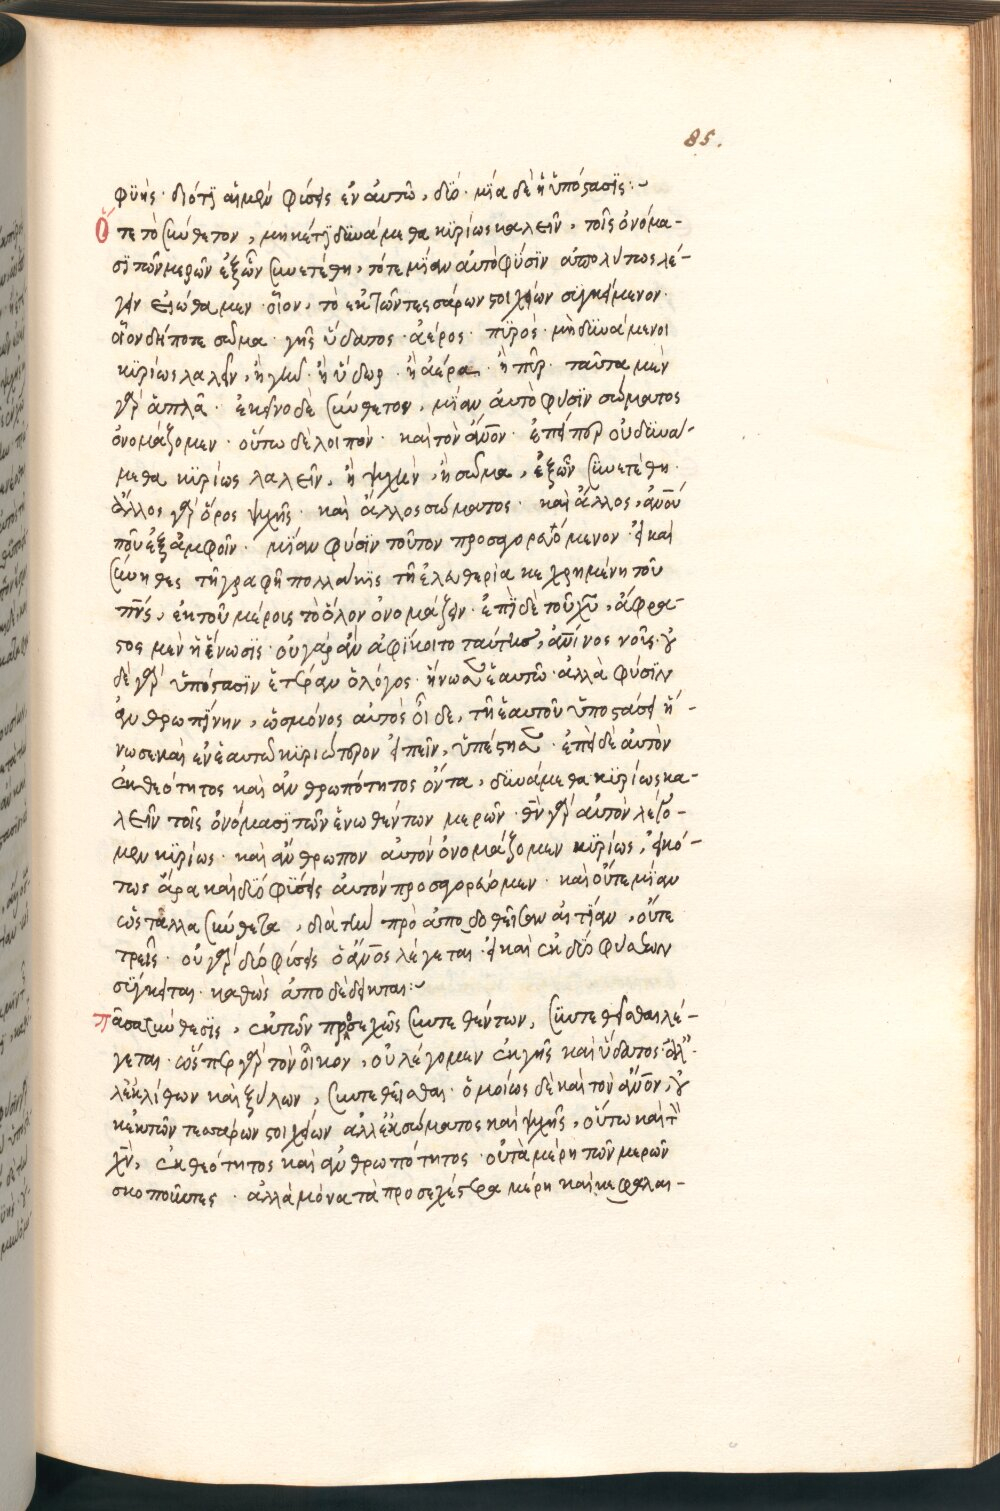 85.
φϋὴς · διότϊ αἱ μὲν φύσεις ἐν αὐτῶ, δύο · μία δὲ ἡ ὑπόστασϊς :~
Ὅτε τὸ σύνθετον, μηκέτϊ δϋνάμεθα κϋρίως καλεῖν, τοῖς ὀνόμα-
σϊ τῶν μερῶν ἐξ ὧν συνετέθη, τότε μΐαν αὐτὸ φύσϊν ἀπολύτως λέ-
γειν εἰώθαμεν · οἷον, τὸ ἐκ τῶν τεσσάρων στοιχείων σϋγκείμενον ·
οἷον δήποτε σῶμα · γῆς ὕδατος · ἀέρος · πϋρὸς · μὴ δϋνάμενοι
κϋρίως λαλεῖν, ἢ γῆν · ἢ ὕδωρ · ἢ ἀέρα · ἢ πῦρ · ταῦτα μὲν
γὰρ ἁπλᾶ · ἐκεῖνο δὲ σύνθετον, μΐαν αὐτὸ φύσϊν σώματος
ὀνομάζομεν · οὕτω δὲ λοιπὸν · καὶ τὸν ἄνον · ἐπείπερ οὐ δϋνά-
μεθα κϋρίως λαλεῖν, ἢ ψϋχὴν, ἢ σῶμα, ἐξ ὧν συνετέθη ·
ἄλλος γὰρ ὅρος ψϋχῆς · καὶ ἄλλος σώματος · καὶ ἄλλος, ἀνου
τοῦ ἐξ ἀμφοῖν · μΐαν φύσϊν τοῦτον προσαγορεύομενον · εἰ καὶ
σύνηθες τῆ γραφῆ πολλάκϊς τῆ ἐλευθερία κεχρημένη τοῦ
πνς, ἐκ τοῦ μέροις τὸ ὅλον ὀνομάζειν · ἐπὶ δὲ τοῦ χυ, ἄφρα-
στος μὲν ἡ ἕνωσις · οὐ γὰρ ἂν ἀφίκοιτο ταύτης, ἀνινος νοῦς · οὐ
δὲ γὰρ ὑπόστασϊν ἑτέραν ὁ λόγος · ἥνωσεν ἑαυτῶ · ἀλλὰ φύσϊν
ἀνθρωπΐνην, ὡς μόνος αὐτὸς οἶδε, τῆ ἑαυτοῦ ὑποστάσει ἥ-
νωσε καὶ ἐν ἑαυτῶ κϋριώτερον εἰπεῖν, ὑπέστησεν · ἐπεὶ δὲ αὐτὸν
ἐκ θεότητος καὶ ἀνθρωπότητος ὄντα, δϋνάμεθα κϋρίως κα-
λεῖν τοῖς ὀνόμασϊ τῶν ἑνωθέντων μερῶν · θν γὰρ αὐτὸν λέγο-
μεν κϋρίως · καὶ ἄνθρωπον αὐτὸν ὀνομάζομεν κυρίως, εἰκό-
τως ἄρα καὶ δύο φύσεις αὐτὸν προσαγορεύομεν · καὶ οὔτε μΐαν
ὡς τἄλλα σύνθετα, διὰ τὴν πρὸ ἀποδοθεῖσαν αἰτΐαν, οὔτε
τρεῖς · οὐ γὰρ δύο φύσεις ὁ ἄνος λέγεται · εἰ καὶ ἐκ δύο φύσεων
σϋγκειται · καθὼς ἀποδέδεικται :~
πᾶσα σύνθεσϊς, ἐκ τῶν προσεχῶς συντεθέντων, συντεθεῖσθαι λέ-
γεται · ὥσπερ γὰρ τὸν οἶκον, οὐ λέγομεν ἐκ γῆς καὶ ὕδατος · ἀλ-
λ' ἐκ λίθων καὶ ξύλων, συντεθεῖσθαι · ὁμοίως δὲ καὶ τὸν ἄνον, οὐ
κ ἐκ τῶν τεσσάρων στοιχείων ἀλλ' ἐκ σώματος καὶ ψϋχῆς, οὕτω καὶ τὸν
χν, ἐκ θεότητος καὶ ἀνθρωπότητος · οὐ τὰ μέρη τῶν μερῶν
σκοποῦντες · ἀλλὰ μόνα τὰ προσεχέστερα μέρη καὶ κεφαλαι-